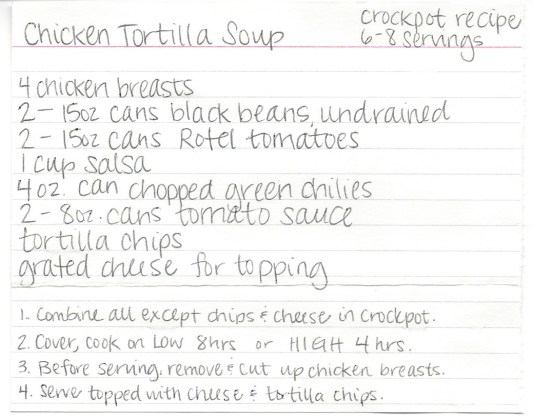 Chicken Tortilla Soup
crockpot recipe
6-8 servings
4 chicken breasts
2 - 15oz cans black beans, undrained
2 - 15oz cans Rotel tomatoes
1 cup salsa
4 oz. can chopped green chilies
2 - 8oz. cans tomato sauce
tortilla chips
grated cheese for topping
1. Combine all except chips & cheese in crockpot.
2. Cover, cook on LOW 8hrs or HIGH 4 hrs.
3. Before serving, remove & cut up chicken breasts.
4. Serve topped with cheese & tortilla chips.